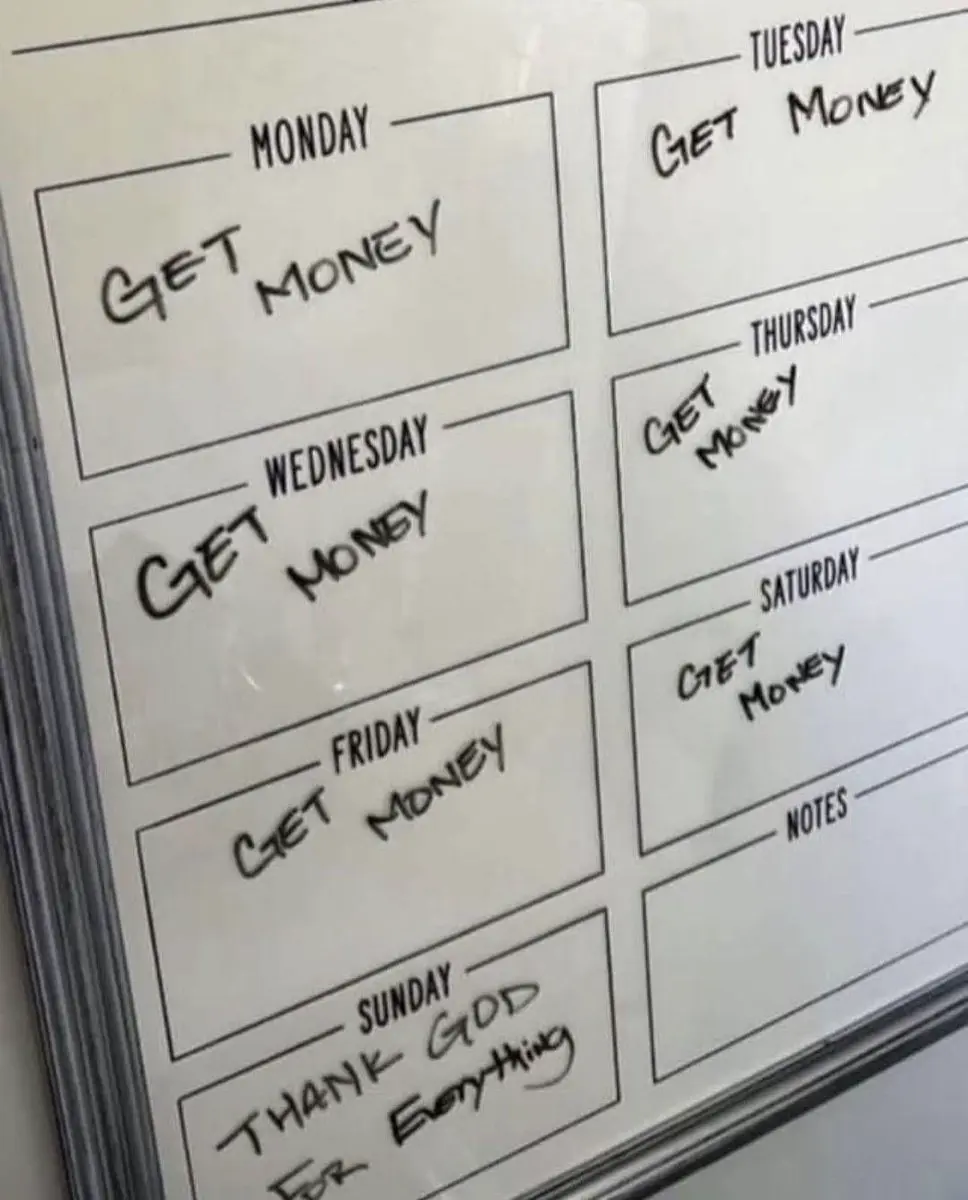 MONDAY
GET
MONEY
TUESDAY
GET MONEY
WEDNESDAY
GET
MONEY
THURSDAY
GET
MONEY
FRIDAY
GET
MONEY
SATURDAY
GET
MONEY
SUNDAY
THANK GOD
FOR Everything
NOTES